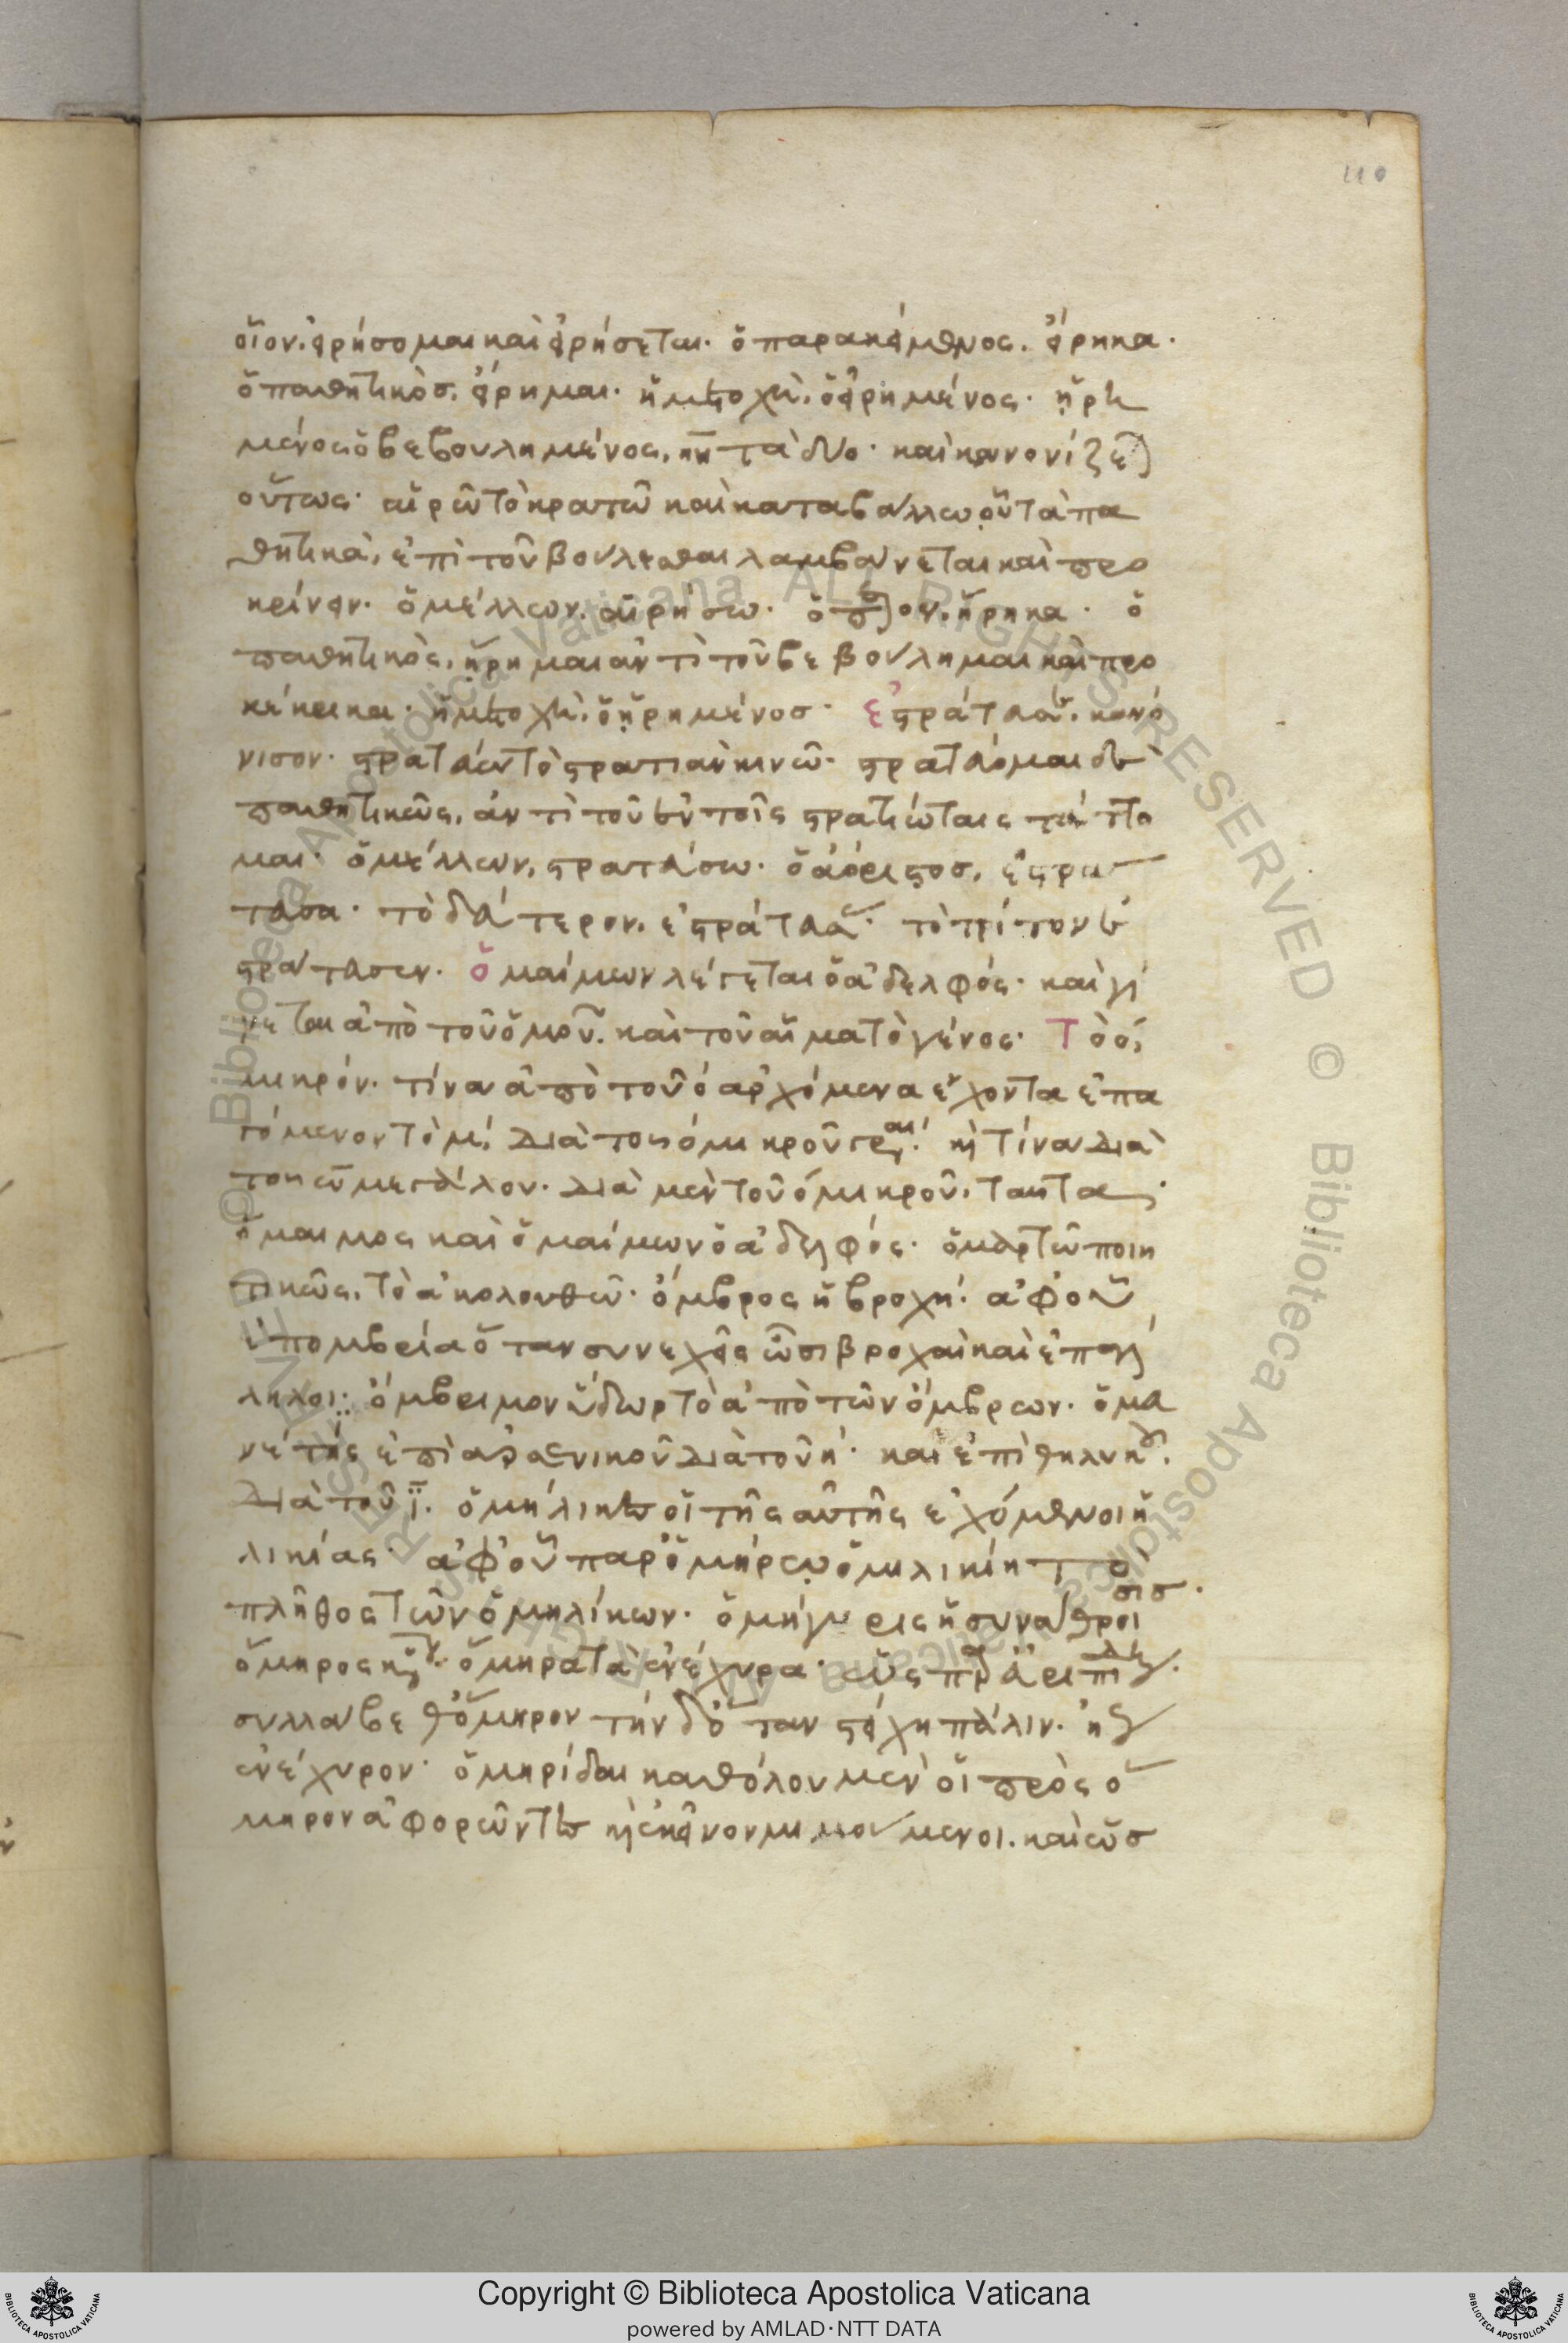 110
οἷον. εἰρήσομαι καὶ εἰρήσεται· ὁ παρακείμενος. εἴρηκα·
ὁ παθητικὸς. εἴρημαι· ἡ μετοχὴ. ὁ εἰρημένος· ᾑρη
μένος ὁ βεβουλημένος, τὰ δύο· καὶ κανονίζεται
οὕτως· αἱρῶ τὸ κρατῶ καὶ καταβάλλω, οὗ τὰ πα
θητικὰ, ἐπὶ τοῦ βούλεσθαι λαμβάνεται καὶ προ
κρίνειν· ὁ μέλλων. αἱρήσω· ὁ ᾕρηκα· ὁ
παθητικὸς, ᾕρημαι ἀντὶ τοῦ βεβούλημαι καὶ προ
κέκρικα· ἡ μετοχὴ. ὁ ᾑρημένος· ἐστράτευσαν. κανό
νισον· στρατεύω τὸ στρατιὰν κινῶ· στρατεύομαι δὲ
παθητικῶς, ἀντὶ τοῦ ἐν τοῖς στρατιώταις τάττο
μαι· ὁ μέλλων, στρατεύσω· ὁ ἀόριστος, ἐστρά
τευσα· τὸ δεύτερον, ἐστράτευσας· τὸ τρίτον ἐ
στράτευσεν· ὁμαίμων λέγεται ὁ ἀδελφός· καὶ γί
νεται ἀπὸ τοῦ ὁμοῦ. καὶ τοῦ αἷμα τὸ γένος· Τὸ ο,
μικρόν. τίνα ἀπὸ τοῦ ο ἀρχόμενα ἔχοντα ἐπα
γόμενον τὸ μ, διὰ τοῦ ο μικροῦ γράφεται· καὶ τίνα διὰ
τοῦ ω μεγάλου· διὰ μὲν τοῦ ο μικροῦ, ταῦτα·
ὅμαιμος καὶ ὁμαίμων ὁ ἀδελφός· ὁμαρτῶ ποιη
τικῶς, τὸ ἀκολουθῶ· ὄμβρος ἡ βροχή· ἀφ' οὗ
ἐπομβρία ὅταν συνεχεῖς ὦσι βροχαὶ καὶ ἐπάλ
ληλοι· ὄμβριμον ὕδωρ τὸ ἀπὸ τῶν ὄμβρων· ὁμευ
νέτης ἐπὶ ἀρσενικοῦ διὰ τοῦ η· καὶ ἐπὶ θηλυκοῦ
διὰ τοῦ ϊ· ὁμήλικες οἱ τῆς αὐτῆς ἐχόμενοι ἡ
λικίας· ἀφ' οὗ παρ' ὁμήρῳ ὁμηλικίη τὸ
πλῆθος τῶν ὁμηλίκων· ὁμήγυρις ἡ συνάθροι
σις·
ὅμηρος ὅμηρα τὰ ἐνέχυρα· ὡς παρ' Εὐριπίδῃ.
συλλάβεθ' ὅμηρον τήνδ' ὅταν στείχῃ πάλιν· ἤγουν
ἐνέχυρον· ὁμηρίδαι καθόλου μὲν οἱ πρὸς ὅ
μηρον ἀφορῶντες καὶ ἐκεῖνον μιμούμενοι. καὶ ὡς
Copyright © Biblioteca Apostolica Vaticana
powered by AMLAD·NTT DATA